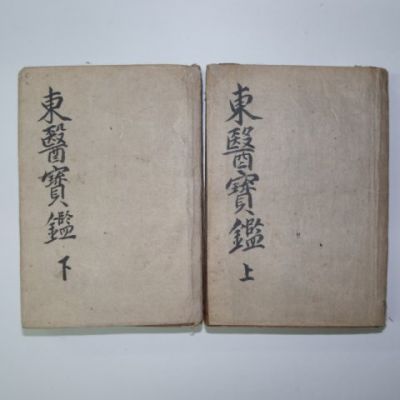 東醫寶鑑 上
東醫寶鑑 下